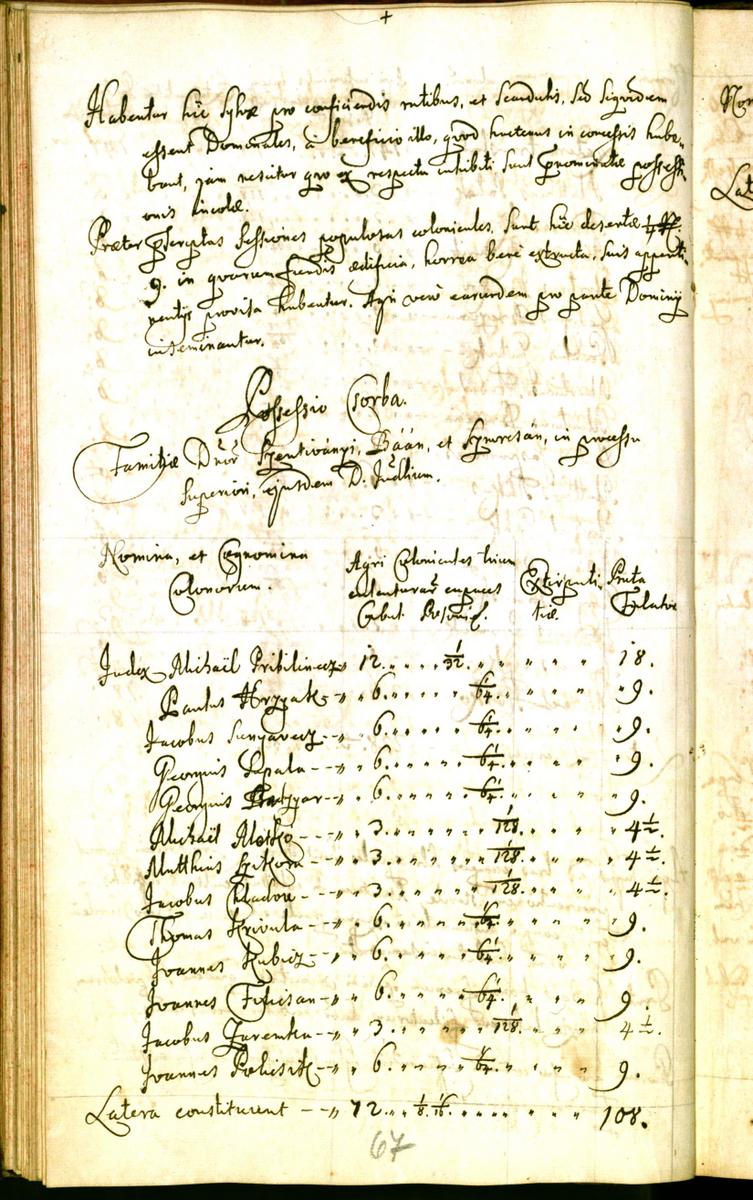 +
Habentur hic sylvæ pro conficiendis rutibus, et scandulis, sed siqvidem
essent Dominales, à beneficio illo, qvod hactenus in concessis habe-
bant, jam nescitur qvo ex respectu inhibiti sunt pronominatæ possessi-
onis incolæ.
Præter pscriptas sessiones populosas coloniales, sunt hic desertæ
9. in qvarum fundis ædificia, horrea bene extructa, suis apperti-
nentijs provisa habentur. Agri verò earundem pro parte Dominij
inseminantur.
Possessio Csorba.
Familiæ Dnor Szentivànyi, Bààn, et Szmrcsàn, in processu
superiori, ejusdem D. Judlium.
Nomina, et Cognomina
Colonorum.
Agri Coloniales trium
calcaturar capaces
Cubul. Posonien.
Extirpati-
tiæ.
Prata
Falcator
Judex Michaël Pribilinecz 12. 1/32. 18.
Paulus Hryzak 6. 1/64. 9.
Jacobus Sunyavecz 6. 1/64. 9.
Georgius Lepala 6. 1/64. 9.
Georgius 6. 1/64. 9.
Michaël Mosko 3. 1/128. 4 1/2.
Matthias Szikora 3. 1/128. 4 1/2.
Jacobus Chladon 3. 1/128. 4 1/2.
Thomas Krivula 6. 1/64. 9.
Joannes Kubicz 6. 1/64. 9.
Joannes Filician 6. 1/64. 9.
Jacobus Zaremka 3. 1/128. 4 1/2.
Joannes Policsik 6. 1/64. 9.
Latera constituunt 72. 1/8. 1/16. 108.
67